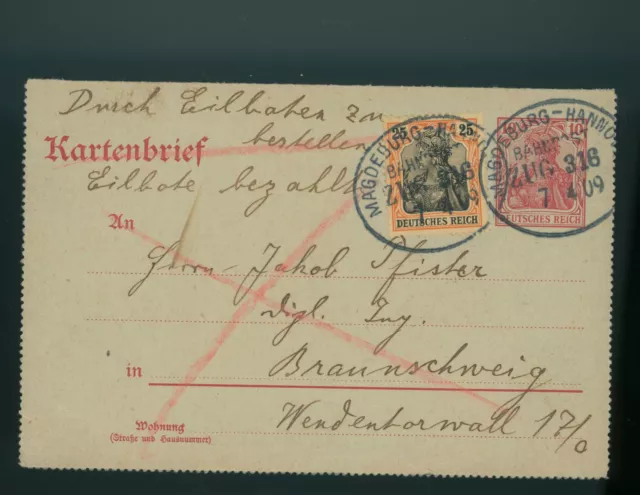 Durch Eilboten zu
bestellen
Kartenbrief
Eilbote bezahlt
An
Herrn Jakob Pfister
dipl. Ing.
in Braunschweig
Wendentorwall 17/0
Wohnung
(Straße und Hausnummer)
25 25
DEUTSCHES REICH
MAGDEBURG-HAN
BAHNPOST
ZUG 316
7 4 09
10
DEUTSCHES REICH
MAGDEBURG-HANNO
BAHNPOST
ZUG 316
7 4 09